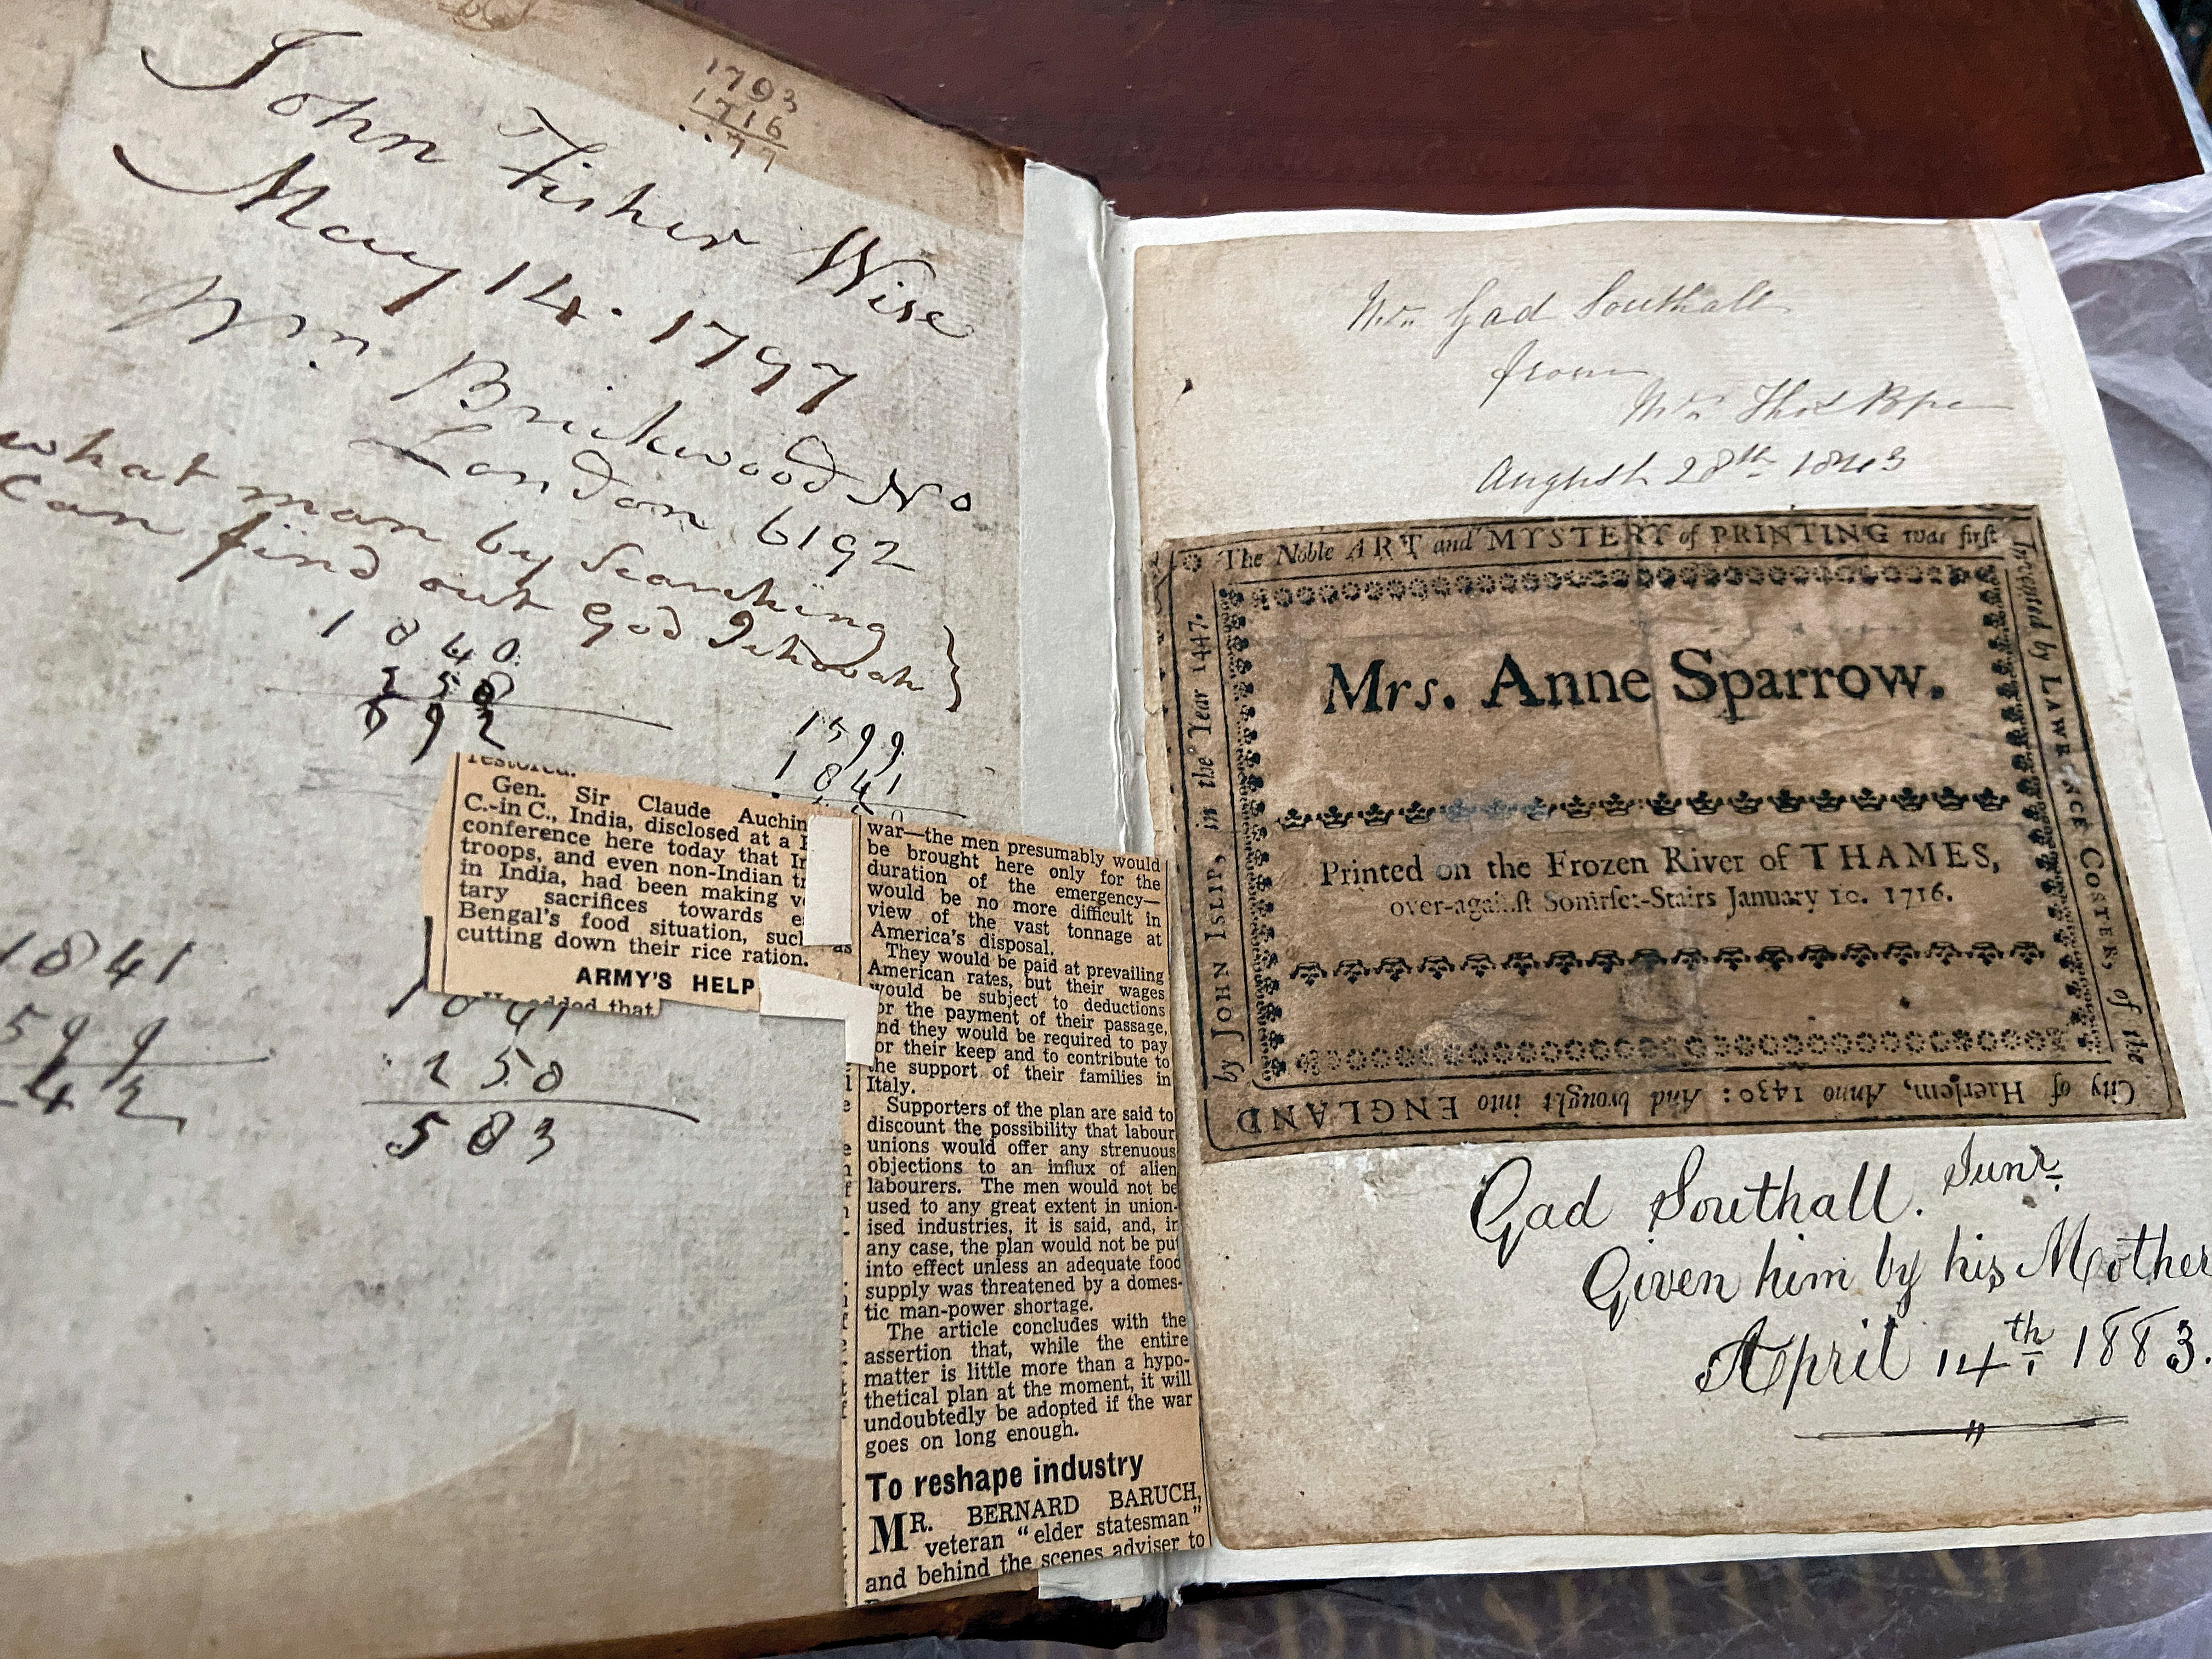 John Fisher Wise
May 14. 1797
Wm Brickwood No
London 6192
what man by Searching
Can find out God Jehovah }
1793
1716
..77
1840.
258
692
1599
1841
1841
599
42
1841
258
583
restored.
Gen. Sir Claude Auchin
C.-in C., India, disclosed at a
conference here today that
troops, and even non-Indian
in India, had been making
tary sacrifices towards
Bengal's food situation, such as
cutting down their rice ration.
ARMY'S HELP
He added that
war—the men presumably would
be brought here only for the
duration of the emergency—
would be no more difficult in
view of the vast tonnage at
America's disposal.
They would be paid at prevailing
American rates, but their wages
would be subject to deductions
or the payment of their passage,
nd they would be required to pay
or their keep and to contribute to
the support of their families in
Italy.
Supporters of the plan are said to
discount the possibility that labour
unions would offer any strenuous
objections to an influx of alien
labourers. The men would not be
used to any great extent in union-
ised industries, it is said, and, in
any case, the plan would not be put
into effect unless an adequate food
supply was threatened by a domes-
tic man-power shortage.
The article concludes with the
assertion that, while the entire
matter is little more than a hypo-
thetical plan at the moment, it will
undoubtedly be adopted if the war
goes on long enough.
To reshape industry
MR. BERNARD BARUCH,
veteran "elder statesman"
and behind the scenes adviser to
Gad Southall
from
Thos Pope
August 28th 1843
The Noble ART and MYSTERY of PRINTING was first
Invented by LAWRENCE COSTER, of the
City of Haerlem, Anno 1430: And brought into ENGLAND
by JOHN ISLIP, in the Year 1447.
Mrs. Anne Sparrow.
Printed on the Frozen River of THAMES,
over-against Somerset-Stairs January 10. 1716.
Gad Southall. Junr.
Given him by his Mother
April 14th 1883.